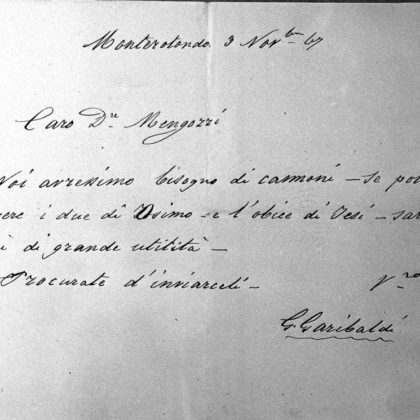 Monterotondo 3 Nov bre 67
Caro Dre Mengozzi
Noi avressimo bisogno di cannoni – se po
ere i due di Osimo – e l'obice di Jesi – sar
i di grande utilità –
Procurate d'inviarceli – Vro
G. Garibaldi